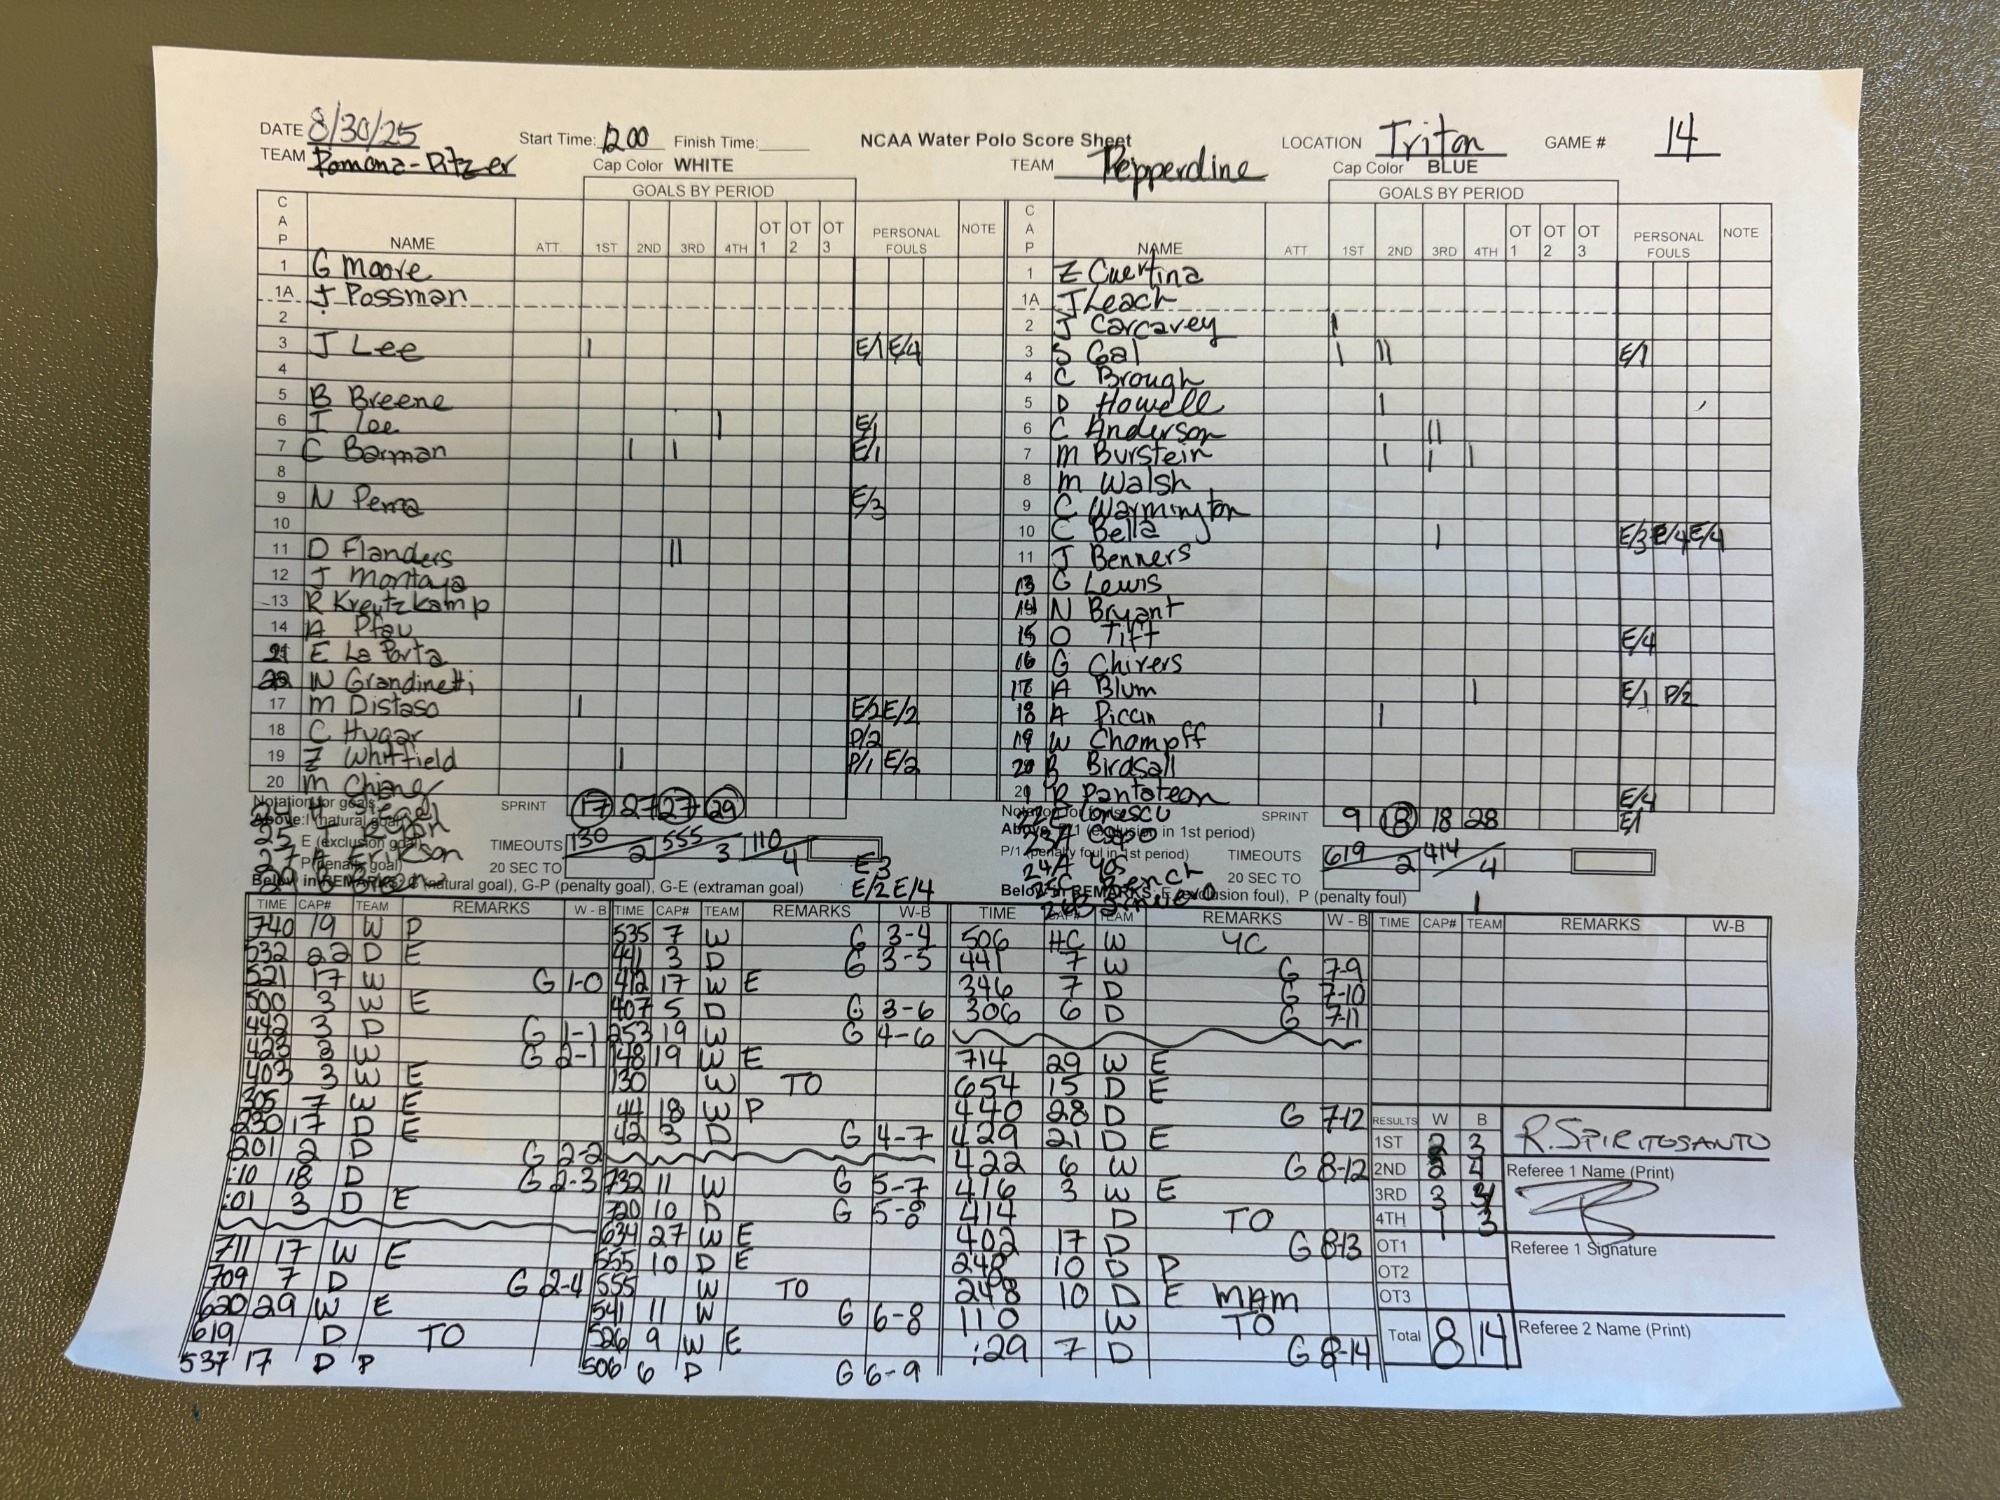 DATE 8/30/25 Start Time: 1200 Finish Time: NCAA Water Polo Score Sheet LOCATION Triton GAME # 14
TEAM Pomona-Pitzer Cap Color WHITE TEAM Pepperdine Cap Color BLUE
GOALS BY PERIOD GOALS BY PERIOD
CAP NAME ATT. 1ST 2ND 3RD 4TH OT 1 OT 2 OT 3 PERSONAL FOULS NOTE CAP NAME ATT. 1ST 2ND 3RD 4TH OT 1 OT 2 OT 3 PERSONAL FOULS NOTE
1 G Moore
1A J Possman
2
3 J Lee I E/1 E/4
4
5 B Breene
6 I Lee I E/1
7 C Barman I I E/1
8
9 N Perna E/3
10
11 D Flanders II
12 J Montaya
13 R Kreutzkamp
14 A Pfau
21 E La Porta
22 N Grandinetti
17 M Distaso I E/2 E/2
18 C Hugar P/2
19 Z Whitfield I P/1 E/2
20 M Chiang
1 Z Cuertina
1A J Leach
2 J Carcavey I
3 S Gal I II E/1
4 C Brough
5 D Howell I
6 C Anderson II
7 M Burstein I I I
8 M Walsh
9 C Warmington
10 C Bella I E/3 E/4 E/4
11 J Benners
13 G Lewis
14 N Bryant
15 O Tift E/4
16 G Chivers
17 A Blum I E/1 P/2
18 A Piccin I
19 W Chompff
20 B Birdsall
21 R Pantateon E/4
22 E Ionescu E/1
SPRINT 17 27 27 29 SPRINT 9 18 18 28
TIMEOUTS 130/2 555/3 110/4 TIMEOUTS 619/2 414/4
20 SEC TO 20 SEC TO
E3
E/2 E/4
G (natural goal), G-P (penalty goal), G-E (extraman goal)
Below in REMARKS: E (exclusion foul), P (penalty foul)
TIME CAP# TEAM REMARKS W - B
740 19 W P
532 22 D E
521 17 W G 1-0
500 3 W E
442 3 D G 1-1
423 3 W G 2-1
403 3 W E
305 7 W E
230 17 D E
201 2 D G 2-2
:10 18 D G 2-3
:01 3 D E
711 17 W E
709 7 D G 2-4
620 29 W E
619 D TO
537 17 D P
TIME CAP# TEAM REMARKS W-B
535 7 W G 3-4
441 3 D G 3-5
412 17 W E
407 5 D G 3-6
253 19 W G 4-6
148 19 W E
130 W TO
44 18 W P
42 3 D G 4-7
732 11 W G 5-7
720 10 D G 5-8
634 27 W E
555 10 D E
555 W TO
541 11 W G 6-8
526 9 W E
506 6 D G 6-9
TIME CAP# TEAM REMARKS W - B
506 HC W YC
441 7 W G 7-9
346 7 D G 7-10
306 6 D G 7-11
714 29 W E
654 15 D E
440 28 D G 7-12
429 21 D E
422 6 W G 8-12
416 3 W E
414 D TO
402 17 D G 8-13
248 10 D P
248 10 D E MAM
110 W TO
:29 7 D G 8-14
TIME CAP# TEAM REMARKS W-B
RESULTS W B
1ST 2 3
2ND 2 4
3RD 3 4
4TH 1 3
OT1
OT2
OT3
Total 8 14
R. SPIRITOSANTO
Referee 1 Name (Print)
Referee 1 Signature
Referee 2 Name (Print)